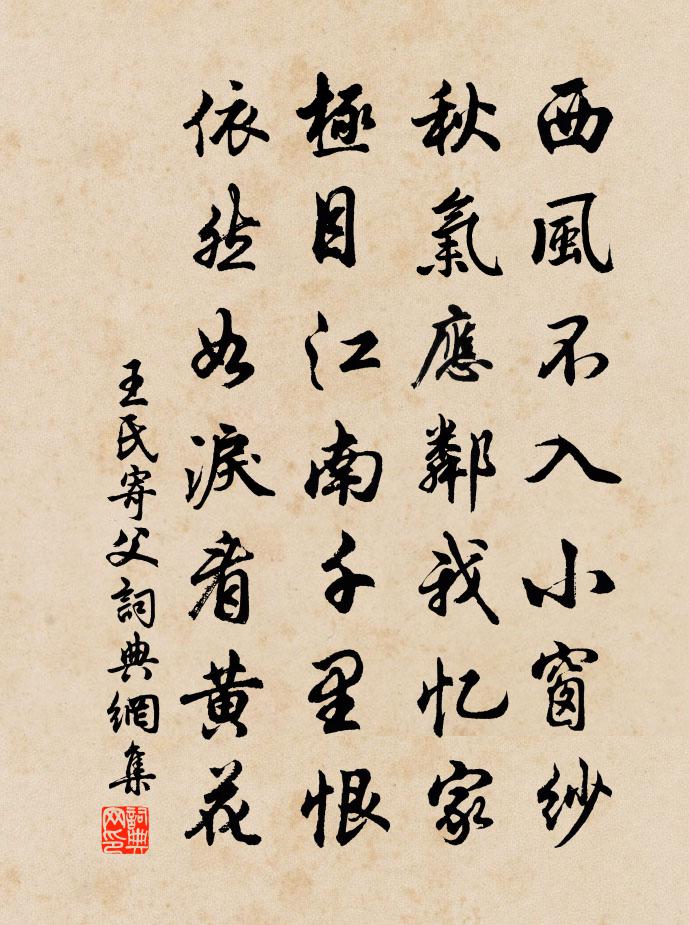 西風不入小窗紗
秋氣應鄰我忆家
極目江南千里恨
依然如淚看黄花
王氏寄父詞典網集
詞典网印